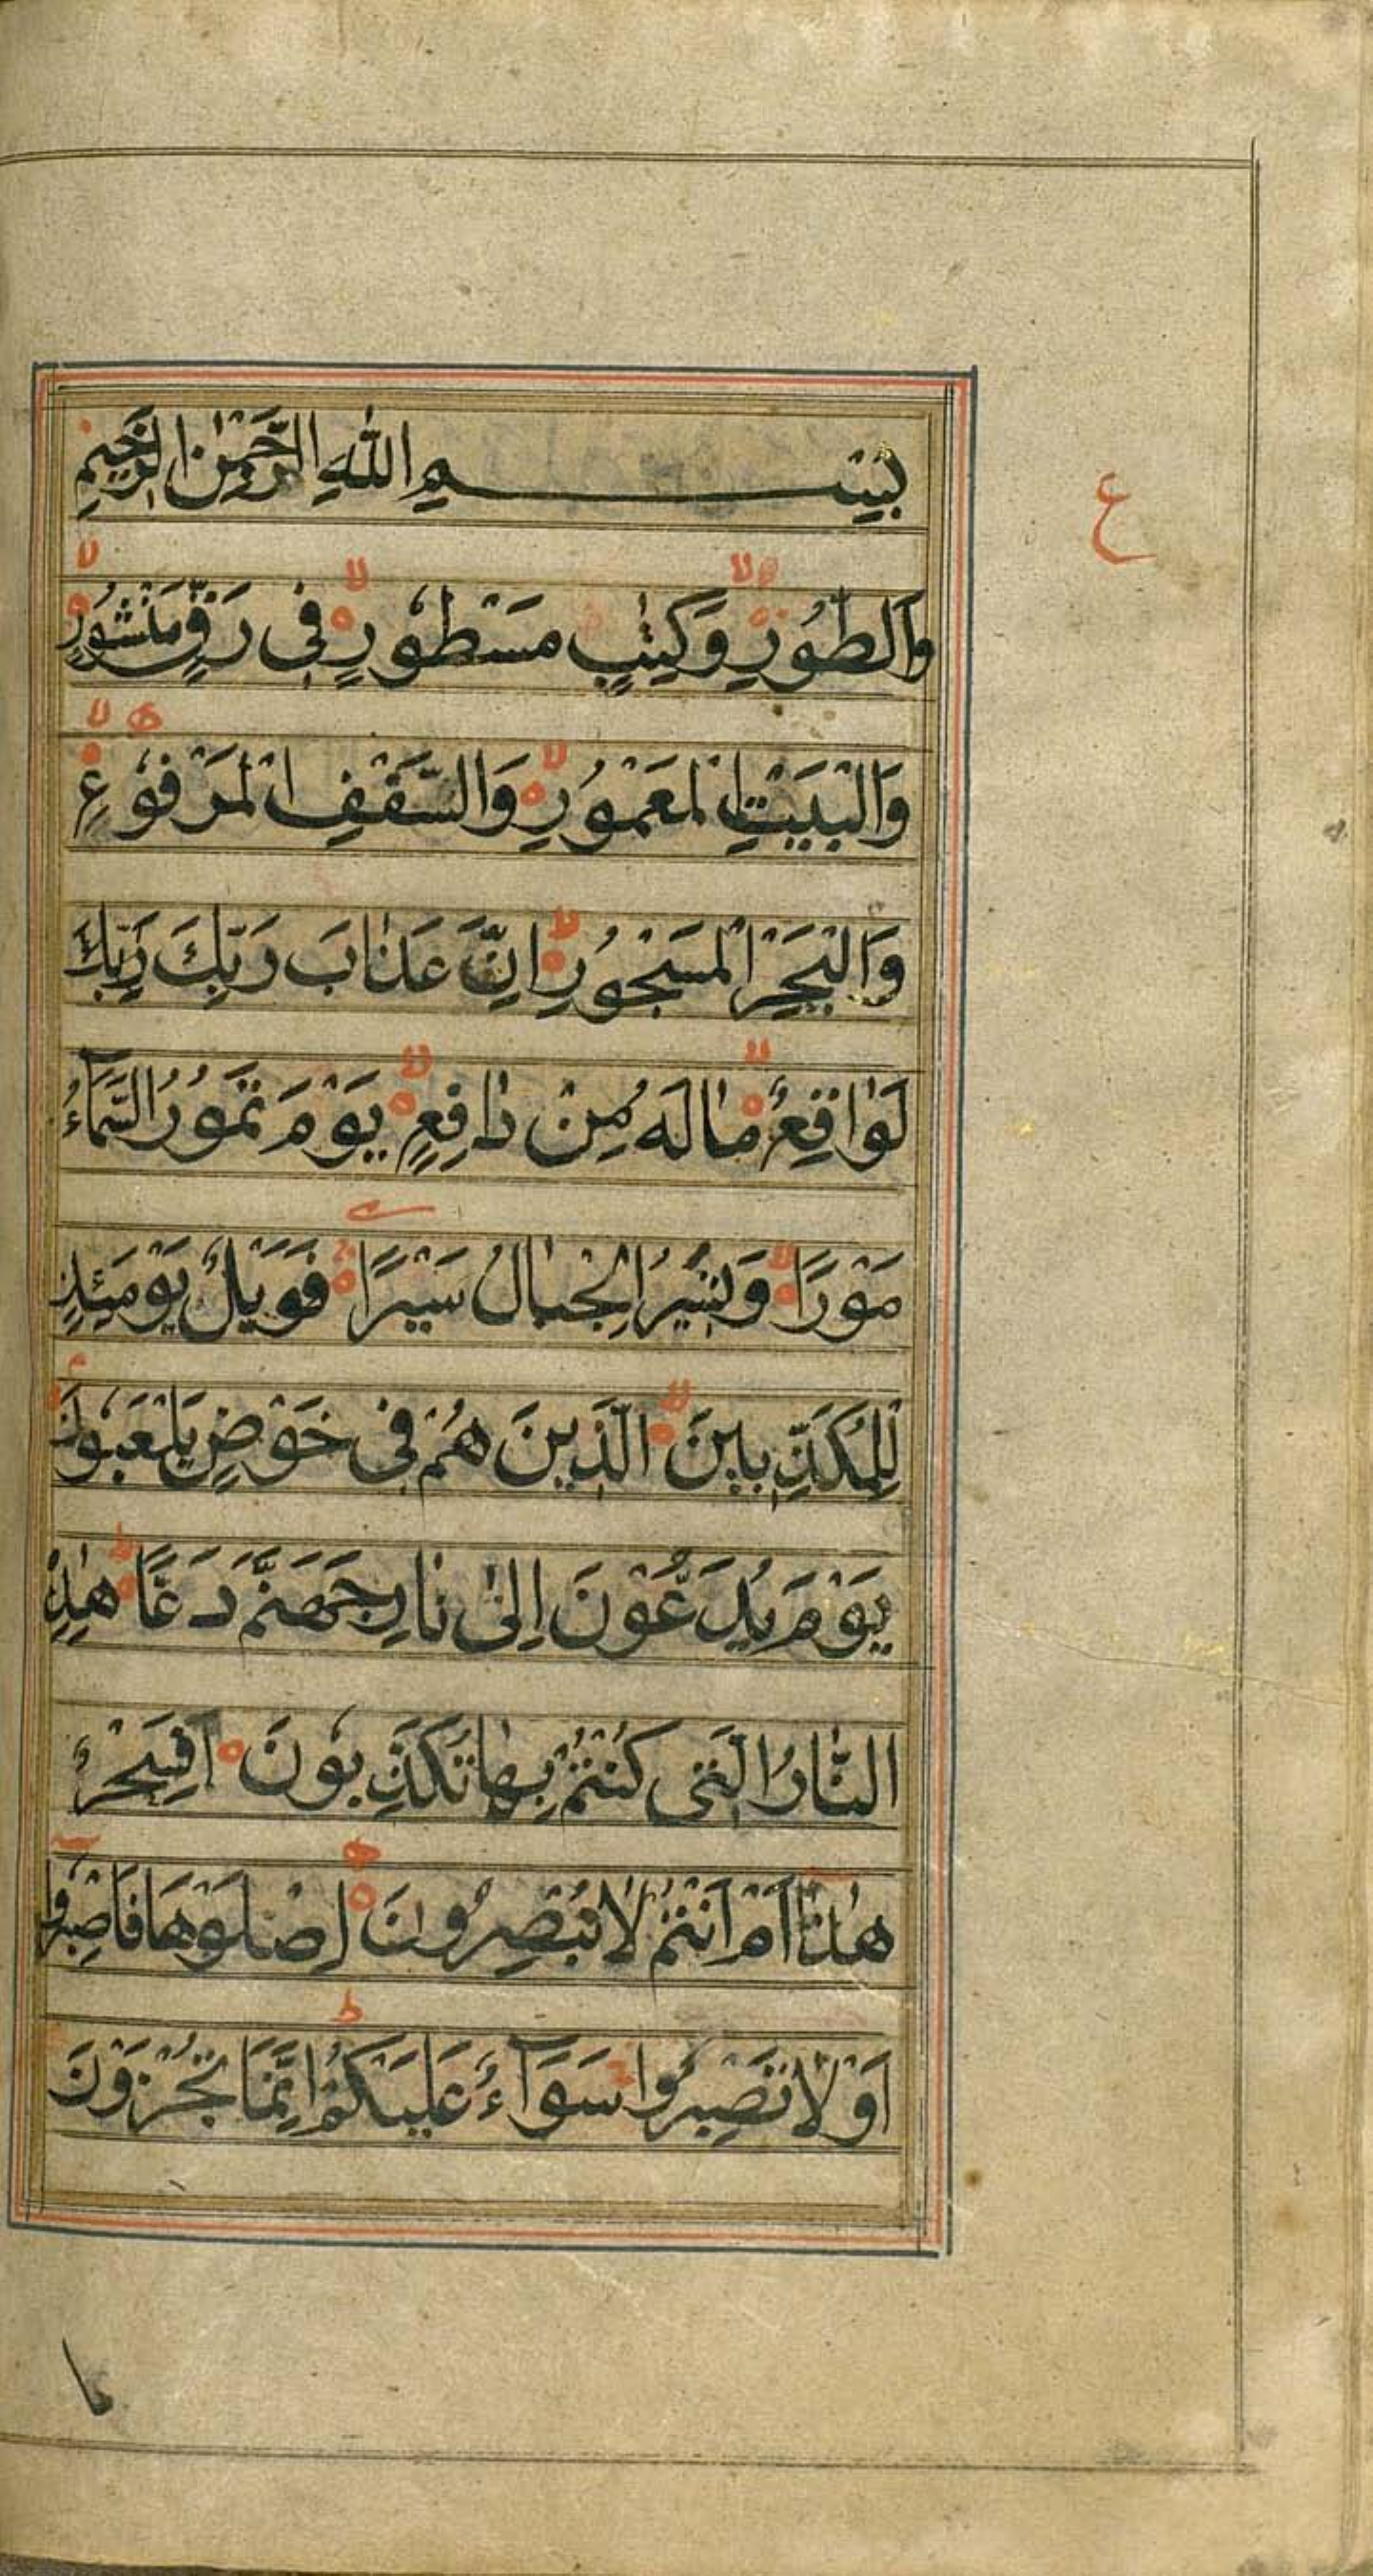 بِسْمِ اللهِ الرَّحْمٰنِ الرَّحِيْمِ
ع
وَالطُّوْرِ وَكِتٰبٍ مَسْطُوْرٍ فِى رَقٍّ مَنْشُوْرٍ
وَالْبَيْتِ الْمَعْمُوْرِ وَالسَّقْفِ الْمَرْفُوْعِ
وَالْبَحْرِ الْمَسْجُوْرِ اِنَّ عَذَابَ رَبِّكَ رَبِّكَ
لَوَاقِعٌ مَالَهُ مِنْ دَافِعٍ يَوْمَ تَمُوْرُ السَّمَآءُ
مَوْرًا وَتَسِيْرُ الْجِبَالُ سَيْرًا فَوَيْلٌ يَوْمَئِذٍ
لِلْمُكَذِّبِيْنَ الَّذِيْنَ هُمْ فِى خَوْضٍ يَلْعَبُوْنَ
يَوْمَ يُدَعُّوْنَ اِلٰى نَارِ جَهَنَّمَ دَعًّا هٰذِهِ
النَّارُ الَّتِى كُنْتُمْ بِهَا تُكَذِّبُوْنَ اَفَسِحْرٌ
هٰذَا اَمْ اَنْتُمْ لَا تُبْصِرُوْنَ اِصْلَوْهَا فَاصْبِرُوْا
اَوْ لَا تَصْبِرُوْا سَوَآءٌ عَلَيْكُمْ اِنَّمَا تُجْزَوْنَ
ما